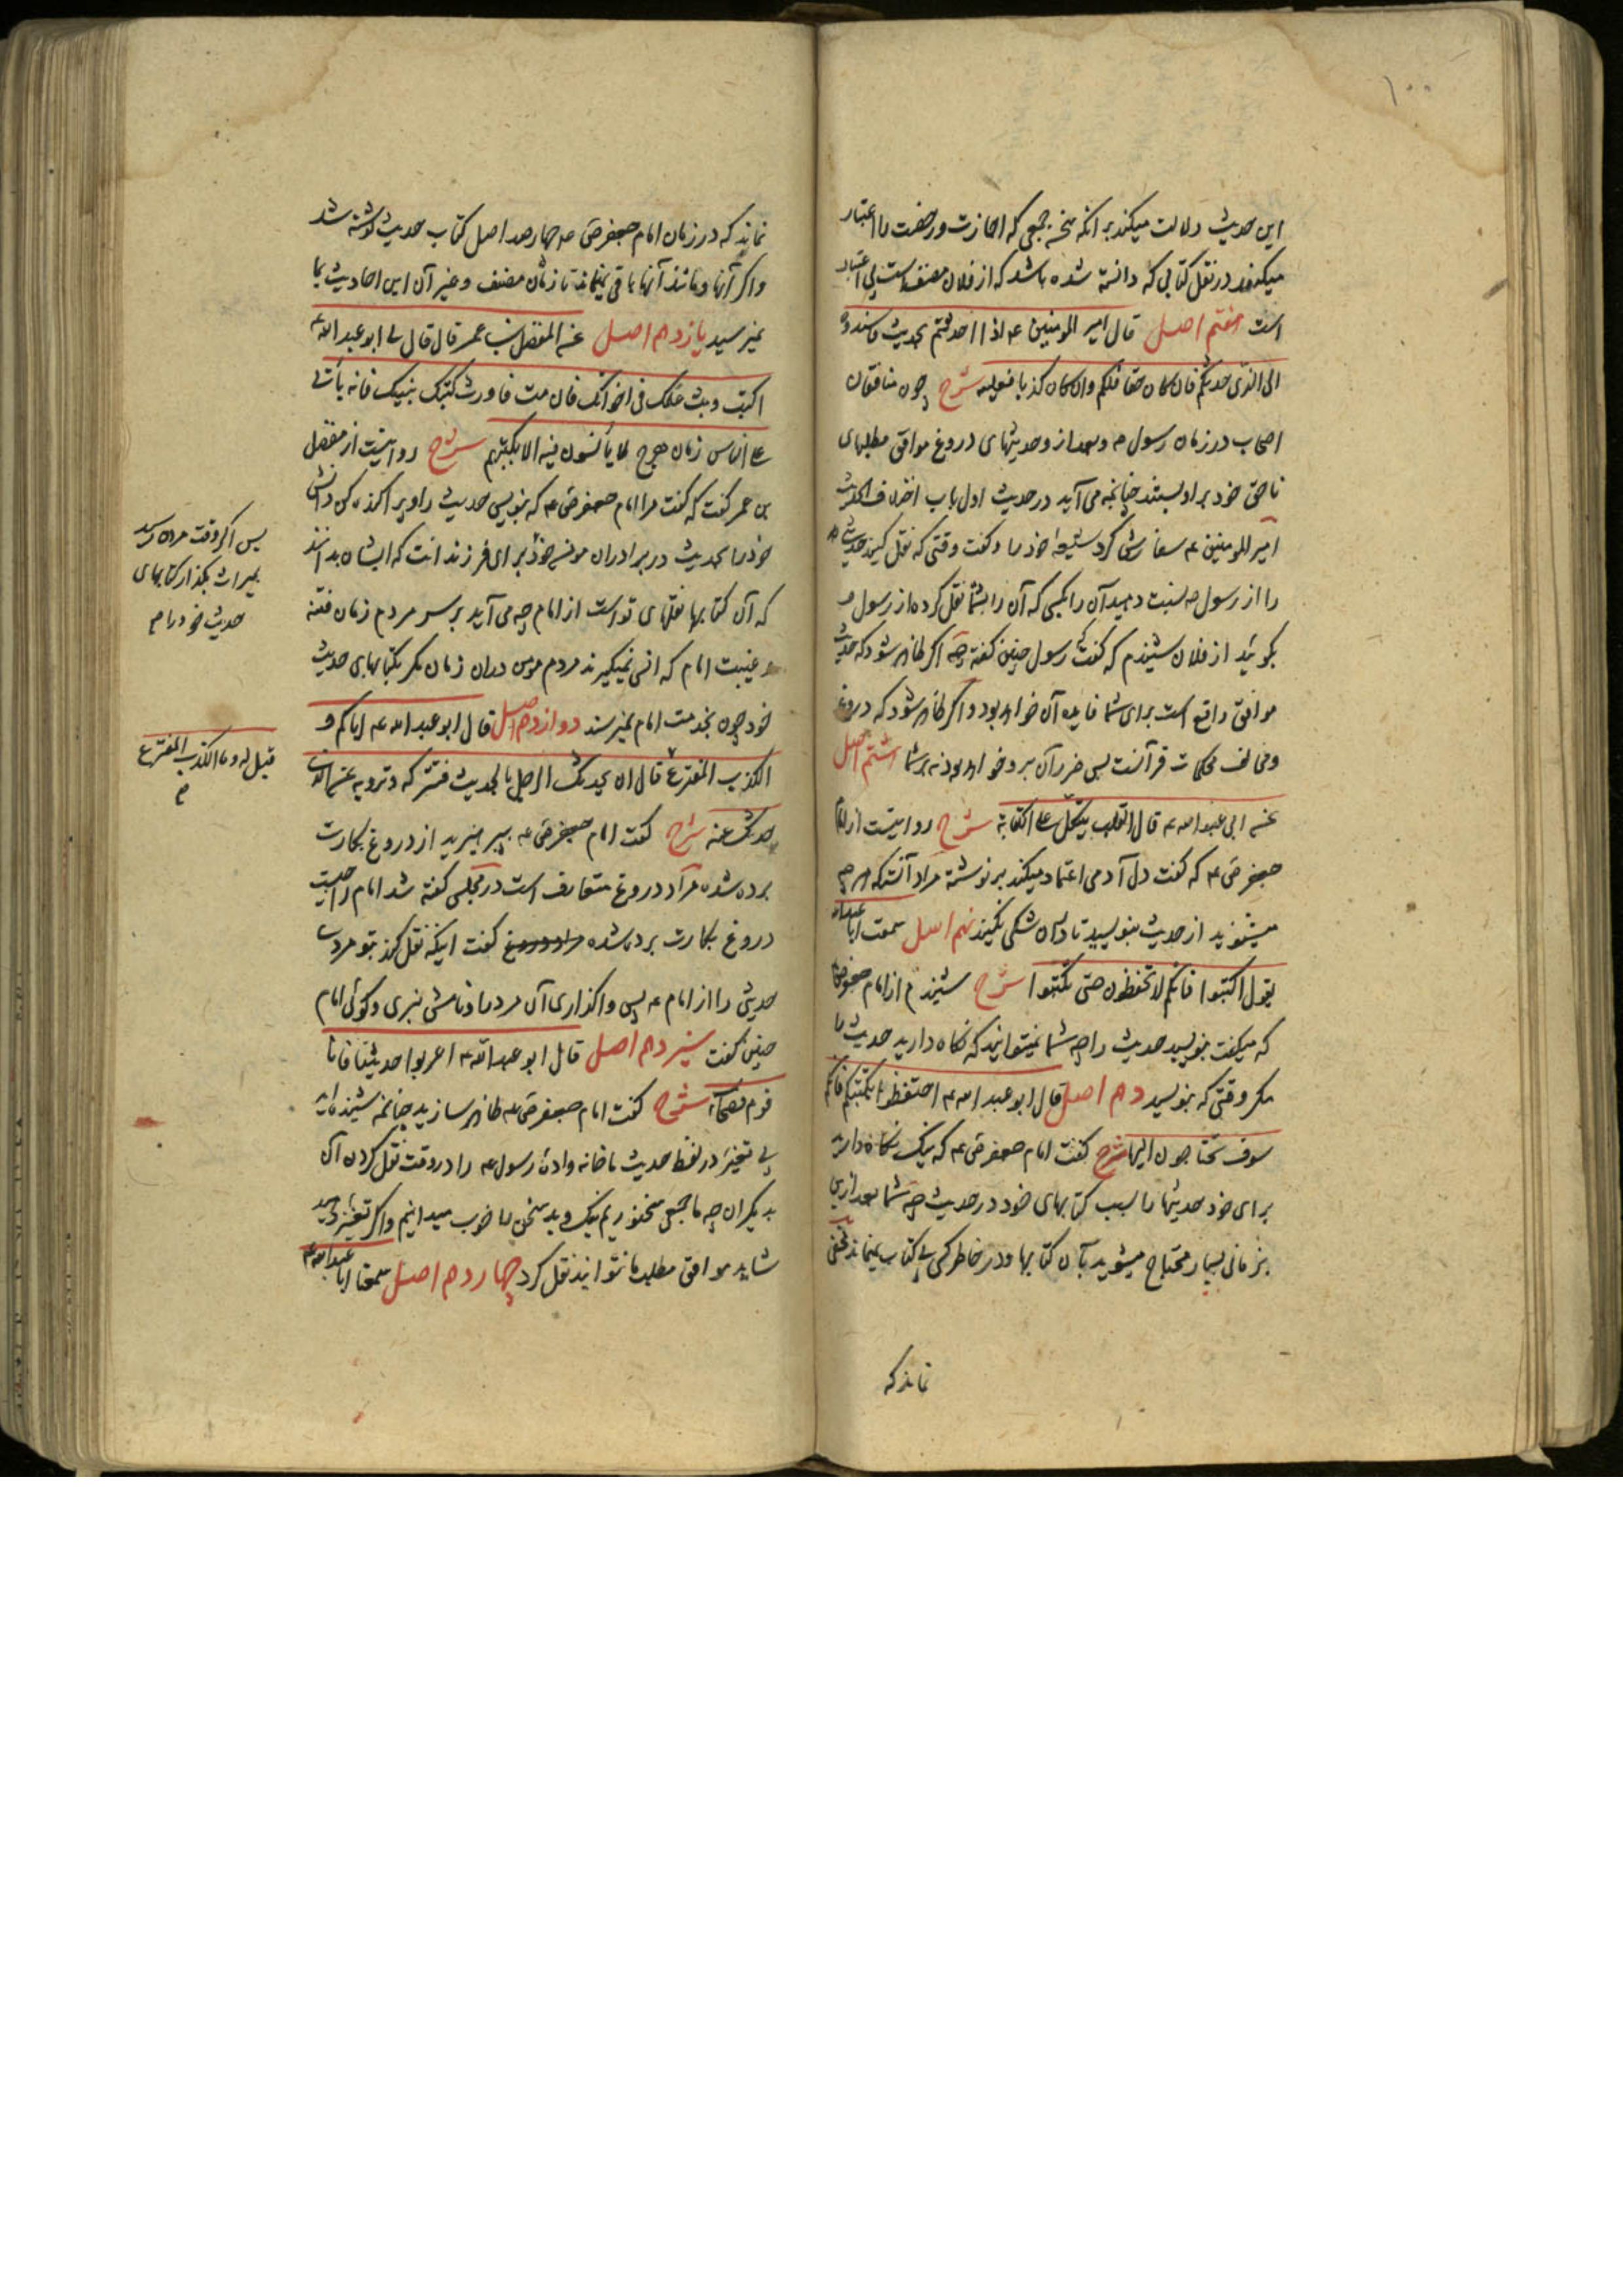 ۱۰۰
این حدیث دلالت میکند بر آنکه سخن جمعی که اجازت و رخصت را اعتبار
میکنند در نقل کتابی که دانسته شده باشد که از فلان مصنف است بی اعتبار
است هفتم اصل قال امیر المومنین ع اذا احدثتم بحدیث فاسندوه
الی الذی حدثکم فان کان حقا فلکم وان کان کذبا فعلیه شرح چون منافقان
اصحاب در زمان رسول ص و بعد از و حدیثهای دروغ موافق مطلبهای
ناحق خود بر او بستند چنانچه می آید در حدیث اول باب اختلاف الحدیث
امیر المومنین ع سفارش کرد شیعهٔ خود را و گفت وقتی که نقل کنید حدیث
را از رسول ص نسبت دهید آن را بکسی که آن را بشما نقل کرده از رسول ص
بگوئید از فلان شنیدم که گفت رسول چنین گفته چه اگر ظاهر شود که حدیث
موافق واقع است برای شما فایده آن خواهد بود و اگر ظاهر شود که دروغ
و مخالف محکمات قرآنست پس ضرر آن برو خواهد بود نه بر شما هشتم اصل
عن ابی عبد الله ع قال القلب یتکل علی الکتابة شرح روایتست از امام
جعفر ص ع که گفت دل آدمی اعتماد میکند بر نوشته مراد آنستکه هرچه
میشنوید از حدیث بنویسید تا در آن شکی نکنید نهم اصل سمعت ابا عبدالله
یقول اکتبوا فانکم لا تحفظون حتی تکتبوا شرح شنیدم از امام جعفر ص
که میگفت بنویسید حدیث را چه شما نمیتوانید که نگاه دارید حدیث را
مگر وقتی که بنویسید دهم اصل قال ابو عبد الله ع احتفظوا بکتبکم فانکم
سوف تحتاجون الیها شرح گفت امام جعفر ص ع که نیک نگاه دارید
برای خود حدیثها را بسبب کتابهای خود در حدیث چه شما بعد ازین
بزمانی بسیار محتاج میشوید بآن کتابها و در خاطر کسی بی کتاب نمیماند مخفی
نماند که
نماند که در زمان امام جعفر ص ع چهارصد اصل کتاب حدیث نوشته شد
و اگر آنها و مانند آنها باقی نمیماند تا زمان مصنف و غیر آن این احادیث بما
نمیرسید یازدهم اصل عن المفضل بن عمر قال قال لی ابو عبد الله ع
اکتب وبث علمک فی اخوانک فان مت فاورث کتبک بنیک فانه یأتی
علی الناس زمان هرج لا یأنسون فیه الا بکتبهم شرح روایتست از مفضل
بن عمر گفت که گفت مرا امام جعفر ص ع که بنویس حدیث را و پراکنده کن دانش
خود را بحدیث در برادران مومن خود برای فرزندانت که ایشان بدانند
که آن کتابها نقلهای تو است از امام چه می آید بر سر مردم زمان فتنه
و غیبت امام که انس نمیگیرند مردم مومن در آن زمان مگر بکتابهای حدیث
خود چون بخدمت امام نمیرسند دوازدهم اصل قال ابو عبد الله ع ایاکم و
الکذب المفترع قال ان یحدثک الرجل بالحدیث فتترکه و ترویه عن الذی
حدثک عنه شرح گفت امام جعفر ص ع بپرهیزید از دروغ بکارت
برده شده مراد دروغ متعارف است در مجلس گفته شد امام را چیست
دروغ بکارت برده شده مراد دروغ گفت اینکه نقل کند بتو مردی
حدیثی را از امام ع پس واگذاری آن مرد را و نامش نبری و گوئی امام
چنین گفت سیزدهم اصل قال ابو عبد الله ع اعربوا حدیثنا فانا
قوم فصحاء شرح گفت امام جعفر ص ع ظاهر سازید چنانچه شنیده اید
بی تغییر در لفظ حدیث ما خانه وادهٔ رسول ع را در وقت نقل کردن آن
بدیگران چه ما جمعی سخنوریم نیک و بد سخن را خوب میدانیم و اگر تغییر دهید
شاید موافق مطلب ما نتوانید نقل کرد چهاردهم اصل سمعنا ابا عبد الله ع
پس اگر وقت مردن رسد
بمیراث بگذار کتابهای
حدیث خود را م
قیل له و ما الکذب المفترع
م